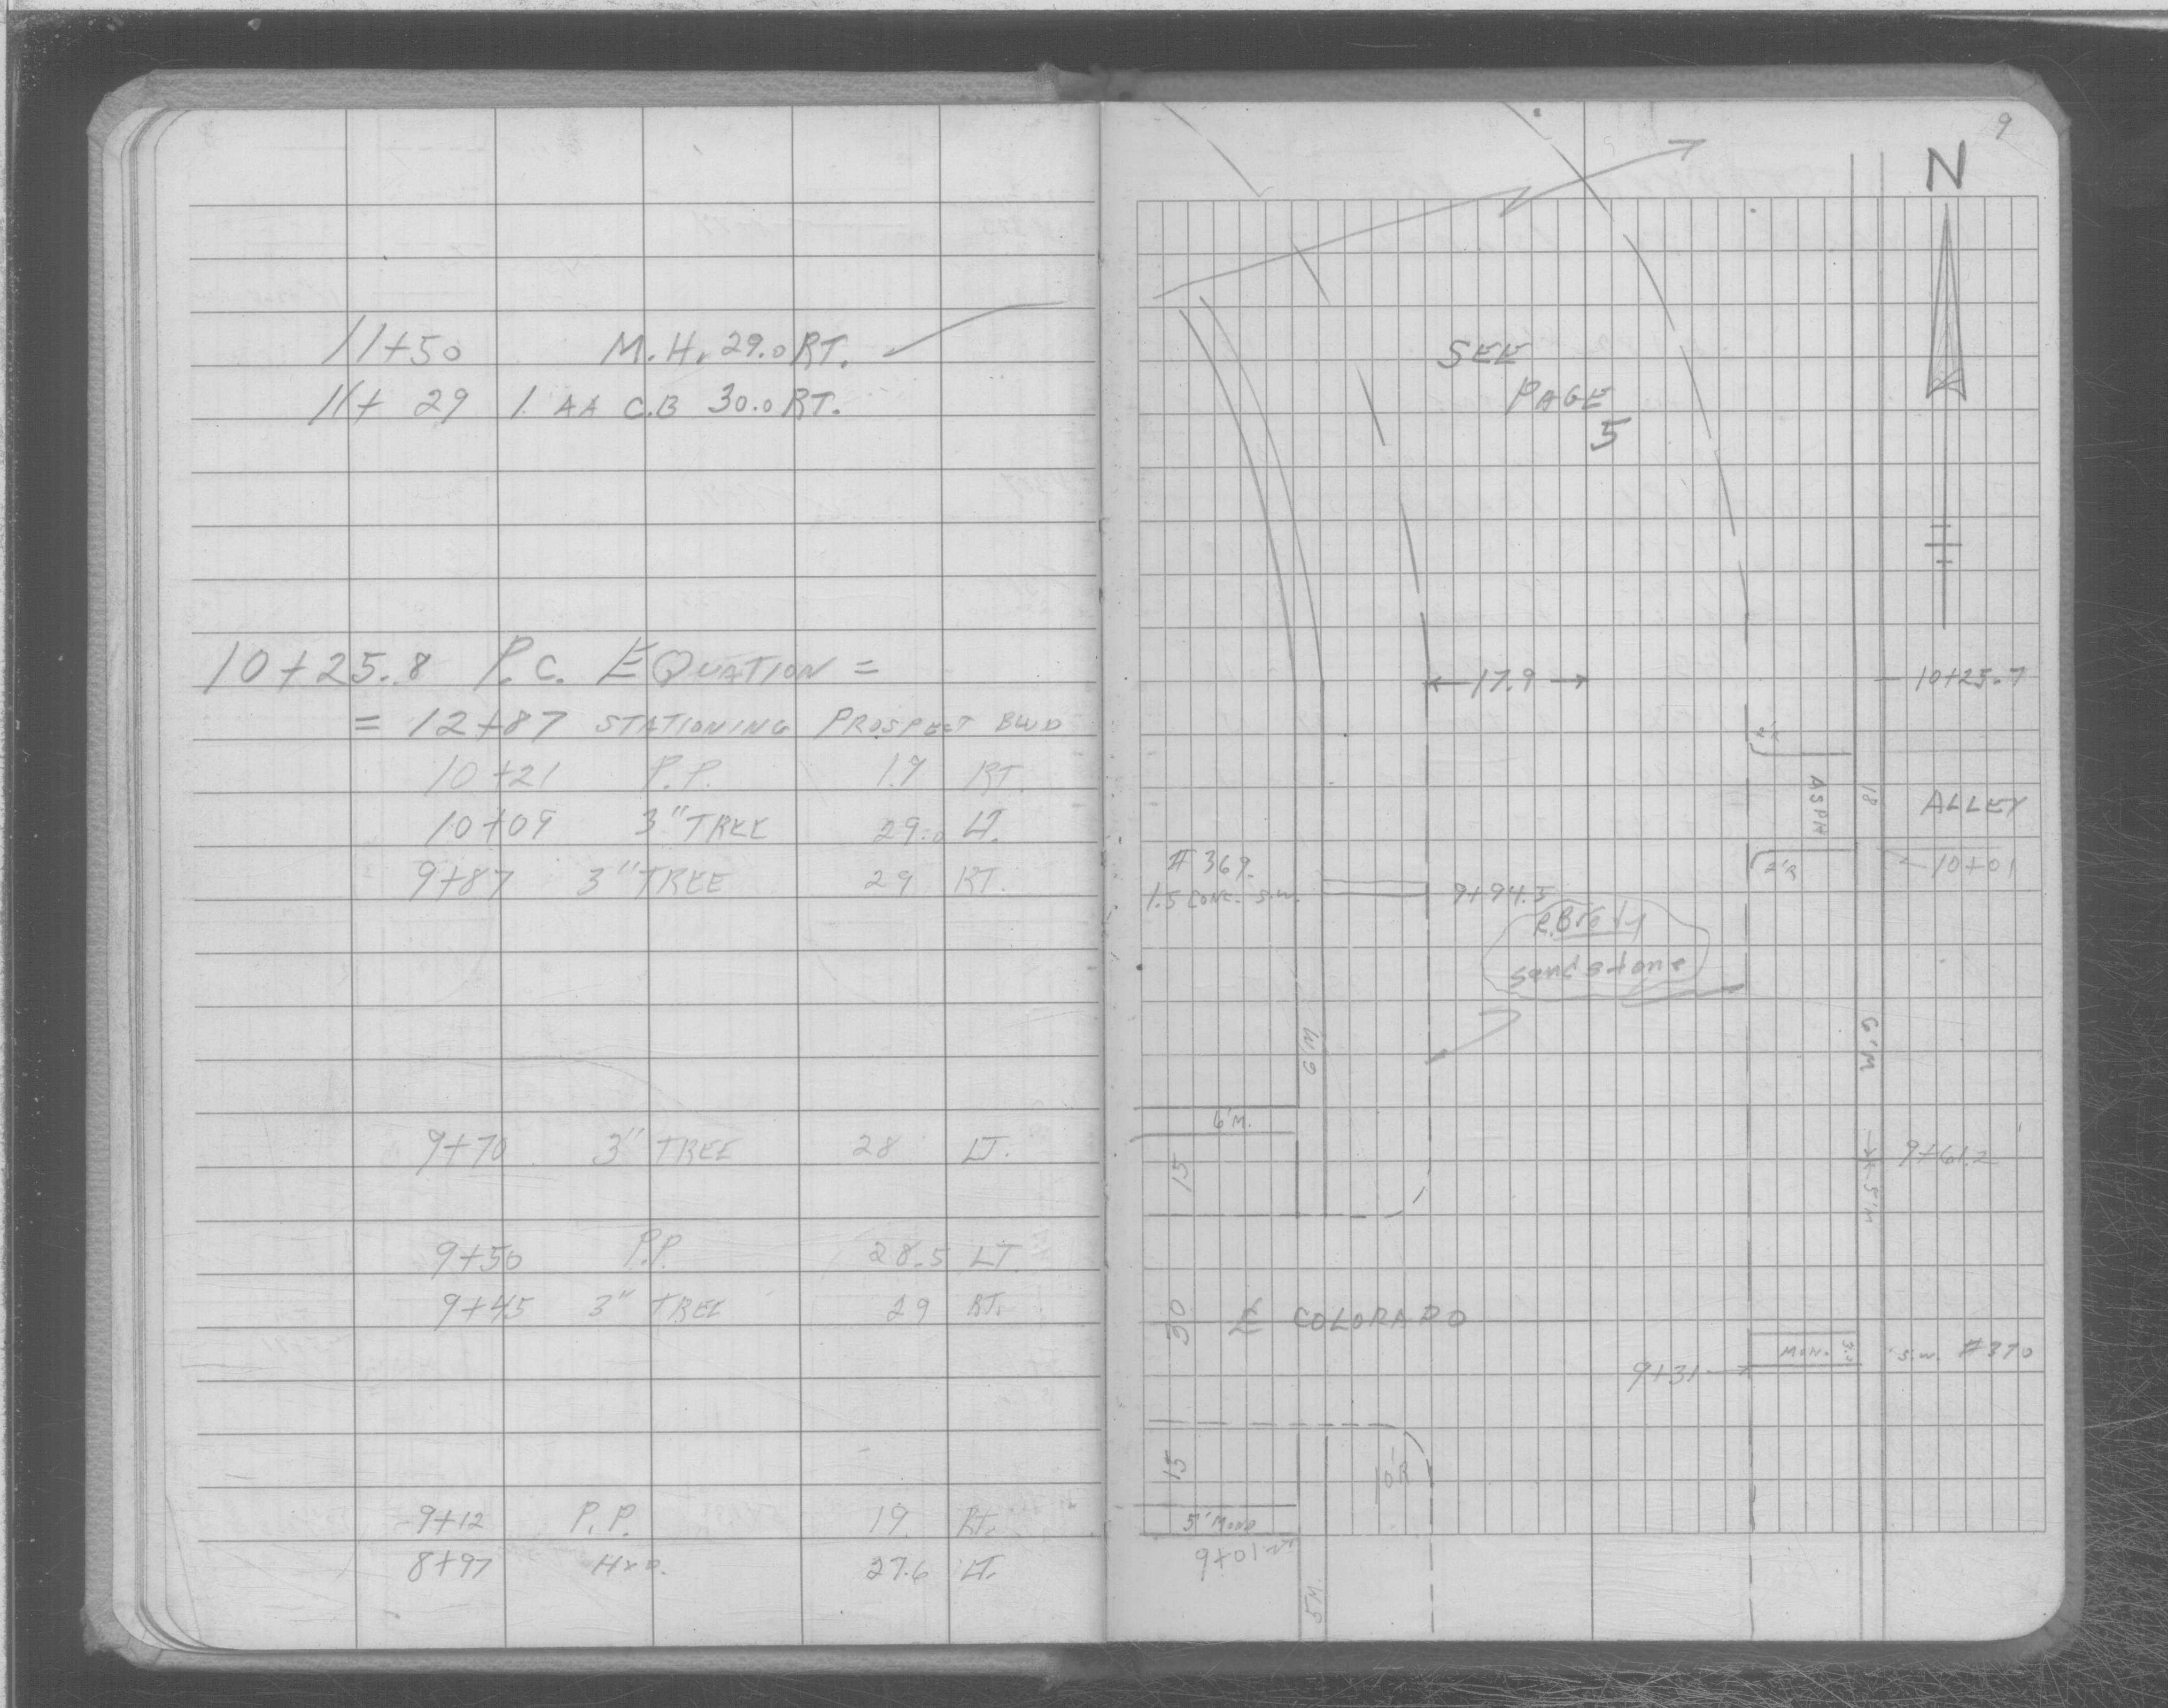 11+50 M.H. 29.0 RT.
11+ 29 1 AA C.B 30.0 RT.
10+25.8 P.C. EQUATION =
= 12+87 STATIONING PROSPECT BLVD
10+21 P.P. 19 RT.
10+09 3" TREE 29.0 LT.
9+87 3" TREE 29 RT.
9+70 3" TREE 28 LT.
9+50 P.P. 28.5 LT.
9+45 3" TREE 29 RT.
9+12 P.P. 19. RT.
8+97 HYD. 27.6 LT.
9
N
SEE
PAGE
5
17.9
10+25.7
2'R
ASPH
18
ALLEY
2'R
10+01
# 369
1.5 CONC. S.W.
9+94.5
R.Brody
sandstone
6'M
6'M
6'M.
15
9+61.2
5'M
30
E COLORADO
MON. 3.
S.W. #370
9+31
15
10'R
5' MONO
9+01
5M.